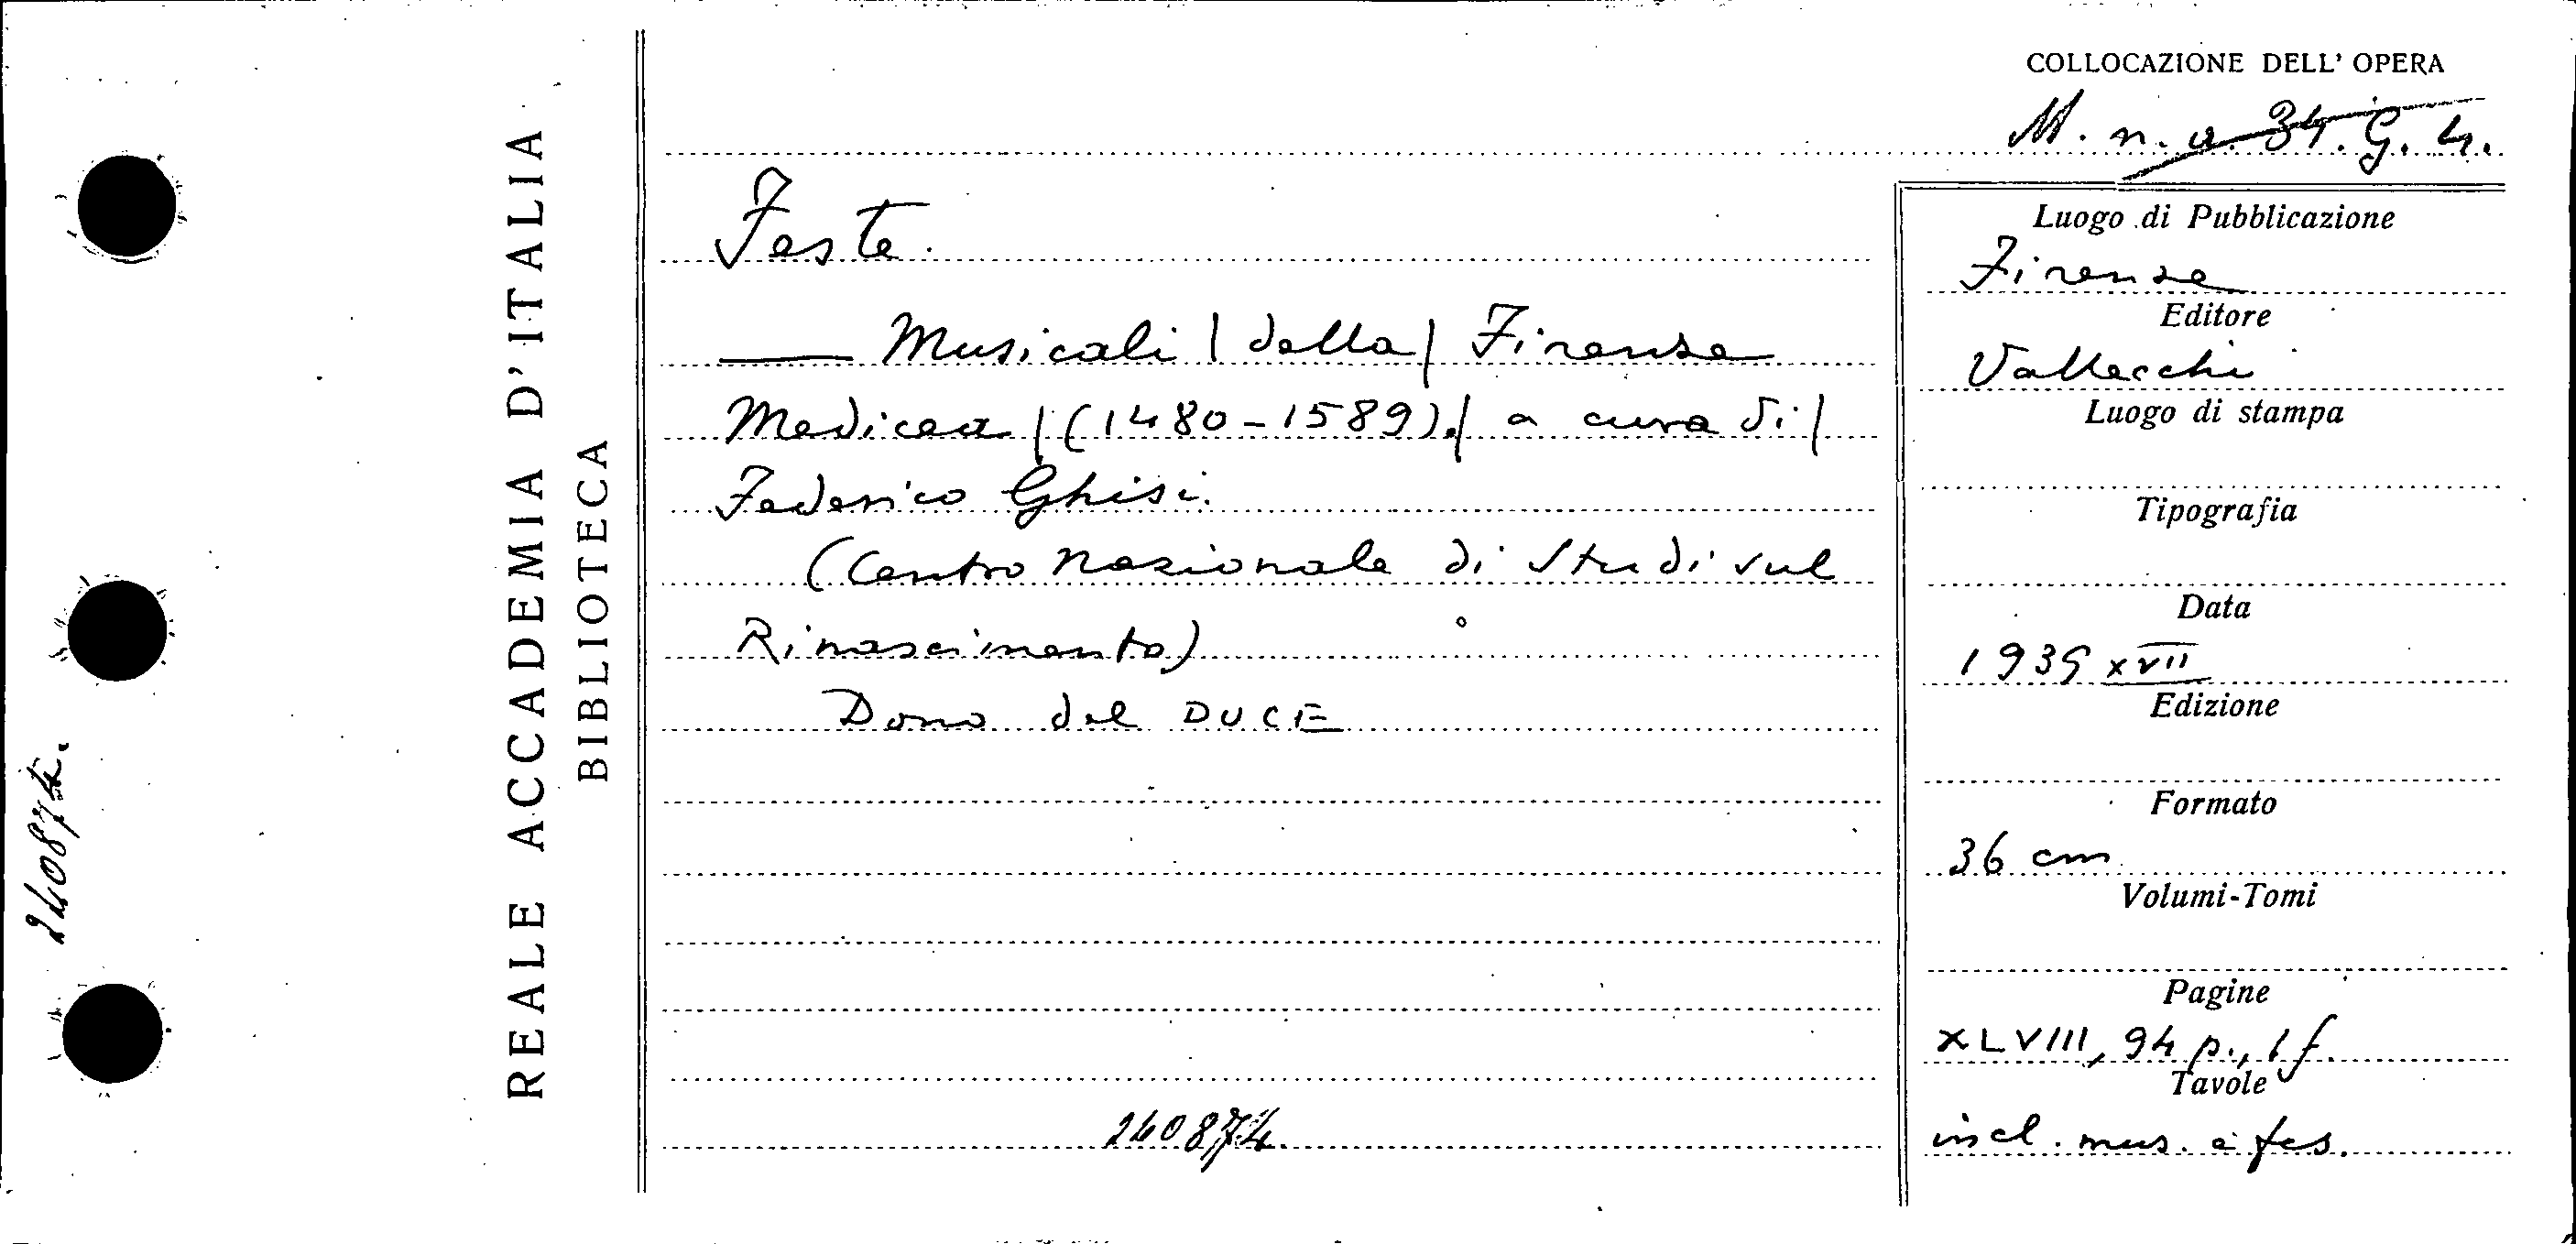 REALE ACCADEMIA D'ITALIA
BIBLIOTECA
240874.
COLLOCAZIONE DELL' OPERA
M. n. a. 34. G. 4.
Feste.
—— Musicali | della | Firenze
Medicea | (1480-1589). | a cura di |
Federico Ghisi.
(Centro Nazionale di Studi sul
Rinascimento)
Dono del DUCE
240874.
Luogo di Pubblicazione
Firenze
Editore
Vallecchi
Luogo di stampa
Tipografia
Data
1939 XVII
Edizione
Formato
36 cm
Volumi-Tomi
Pagine
XLVIII, 94 p., 1 f.
Tavole
incl. mus. e fcs.